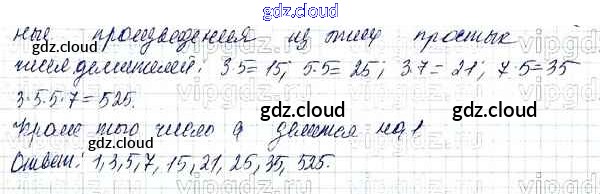 gdz.cloud
ные произведения из этих простых
чисел делителей: 3·5=15; 5·5=25; 3·7=21; 7·5=35
3·5·5·7=525.
gdz.cloud gdz.cloud
Кроме того число a делится на 1
Ответ: 1,3,5,7, 15,21,25,35,525.
gdz.cloud gdz.cloud